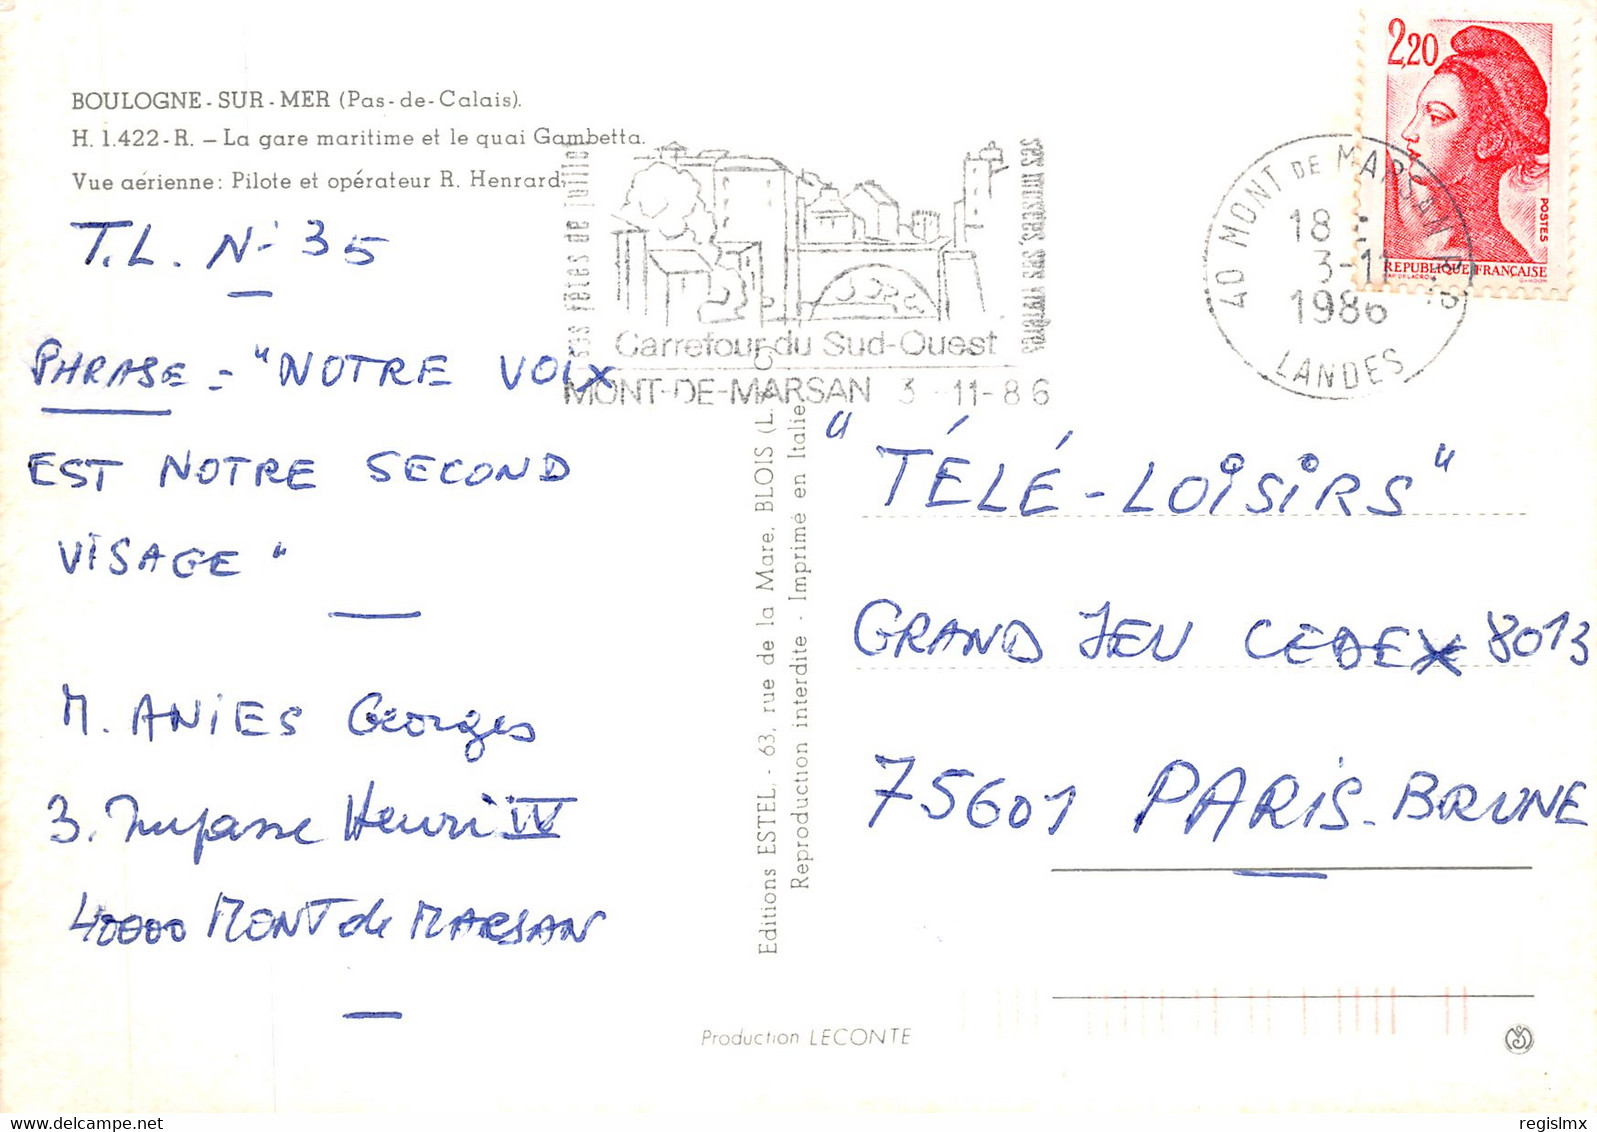 BOULOGNE-SUR-MER (Pas-de-Calais).
H. 1.422-R. – La gare maritime et le quai Gambetta.
Vue aérienne: Pilote et opérateur R. Henrard.
T.L. N- 35
PHRASE = "NOTRE VOIX
EST NOTRE SECOND
VISAGE"
M. ANIES Georges
3. Impasse Henri IV
40000 MONT de MARSAN
ses fêtes de juillet
Carrefour du Sud-Ouest
MONT-DE-MARSAN 3-11-86
40 MONT DE MARSAN
18
3-11
1986
LANDES
2,20
POSTES
REPUBLIQUE FRANÇAISE
Editions ESTEL, - 63, rue de la Mare, BLOIS (L.
Reproduction interdite - Imprimé en Italie
"TÉLÉ-LOISIRS"
GRAND JEU CEDEX 8013
75601 PARIS-BRUNE
Production LECONTE
regislmx